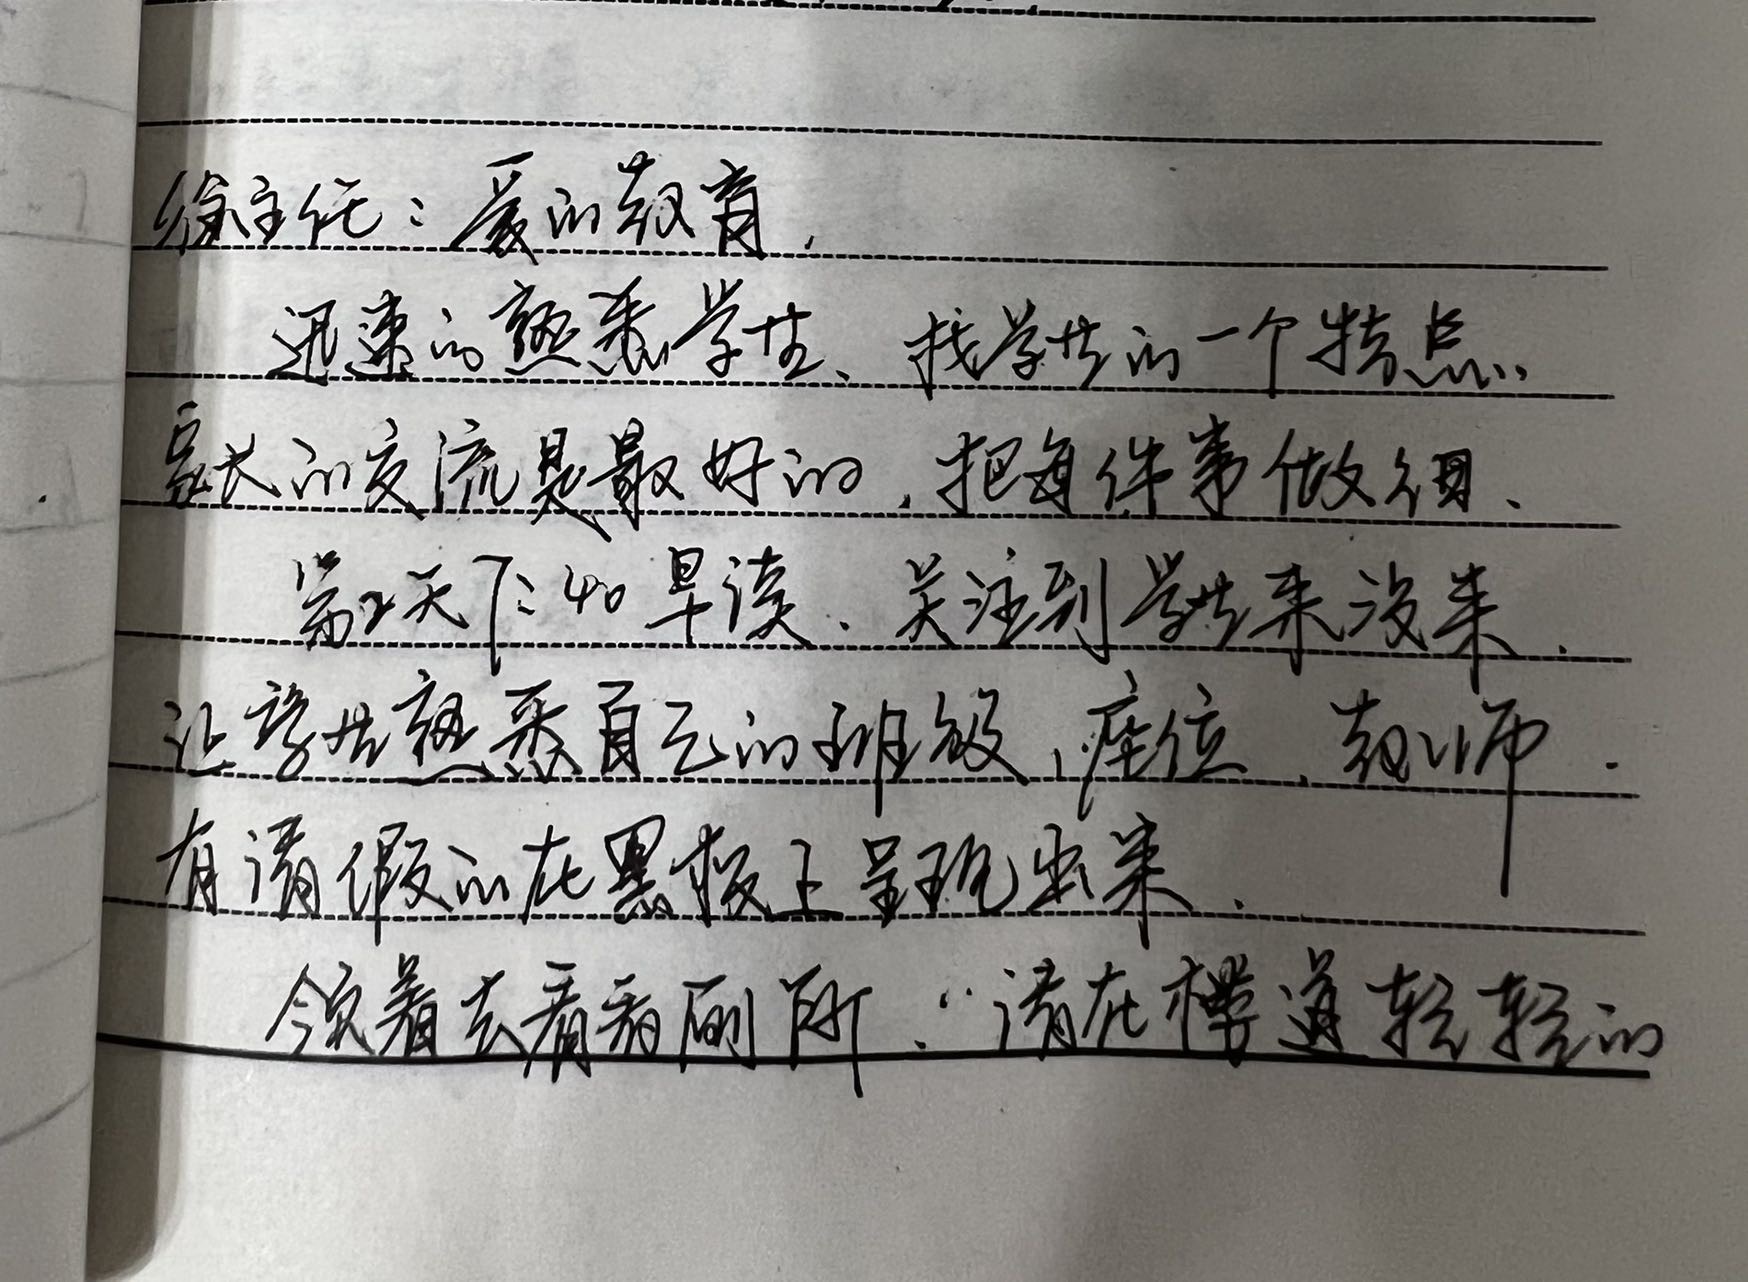 徐主任：爱的教育，
迅速的熟悉学生、找学生的一个特点、
家长的交流是最好的，把每件事做细、
第2天7:40早读、关注到学生来没来、
让学生熟悉自己的班级、座位、教师．
有请假的在黑板上呈现出来．
领着去看看厕所．“请在楼道轻轻的